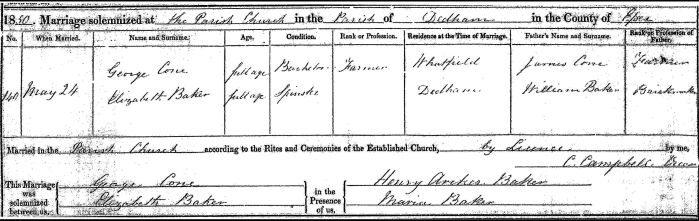 1850. Marriage solemnized at the Parish Church in the Parish of Dedham in the County of Essex
No. When Married. Name and Surname. Age. Condition. Rank or Profession. Residence at the Time of Marriage. Father's Name and Surname. Rank or Profession of Father.
George Cone full age Bachelor Farmer Whatfield James Cone Farmer
May 24 Elizabeth Baker full age Spinster Dedham William Baker
Married in the Parish Church according to the Rites and Ceremonies of the Established Church, by Licence by me,
C. Campbell
This Marriage was solemnized between us, George Cone Elizabeth Baker in the Presence of us, Henry Archer Baker Maria Baker